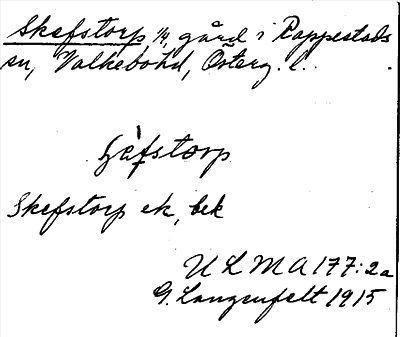 Skefstorp 1/4, gård i Rappestads
sn, Valkebo hd, Österg. l.
Skefstorp ek, bek
ULMA 177:2a
G. Langenfelt 1915